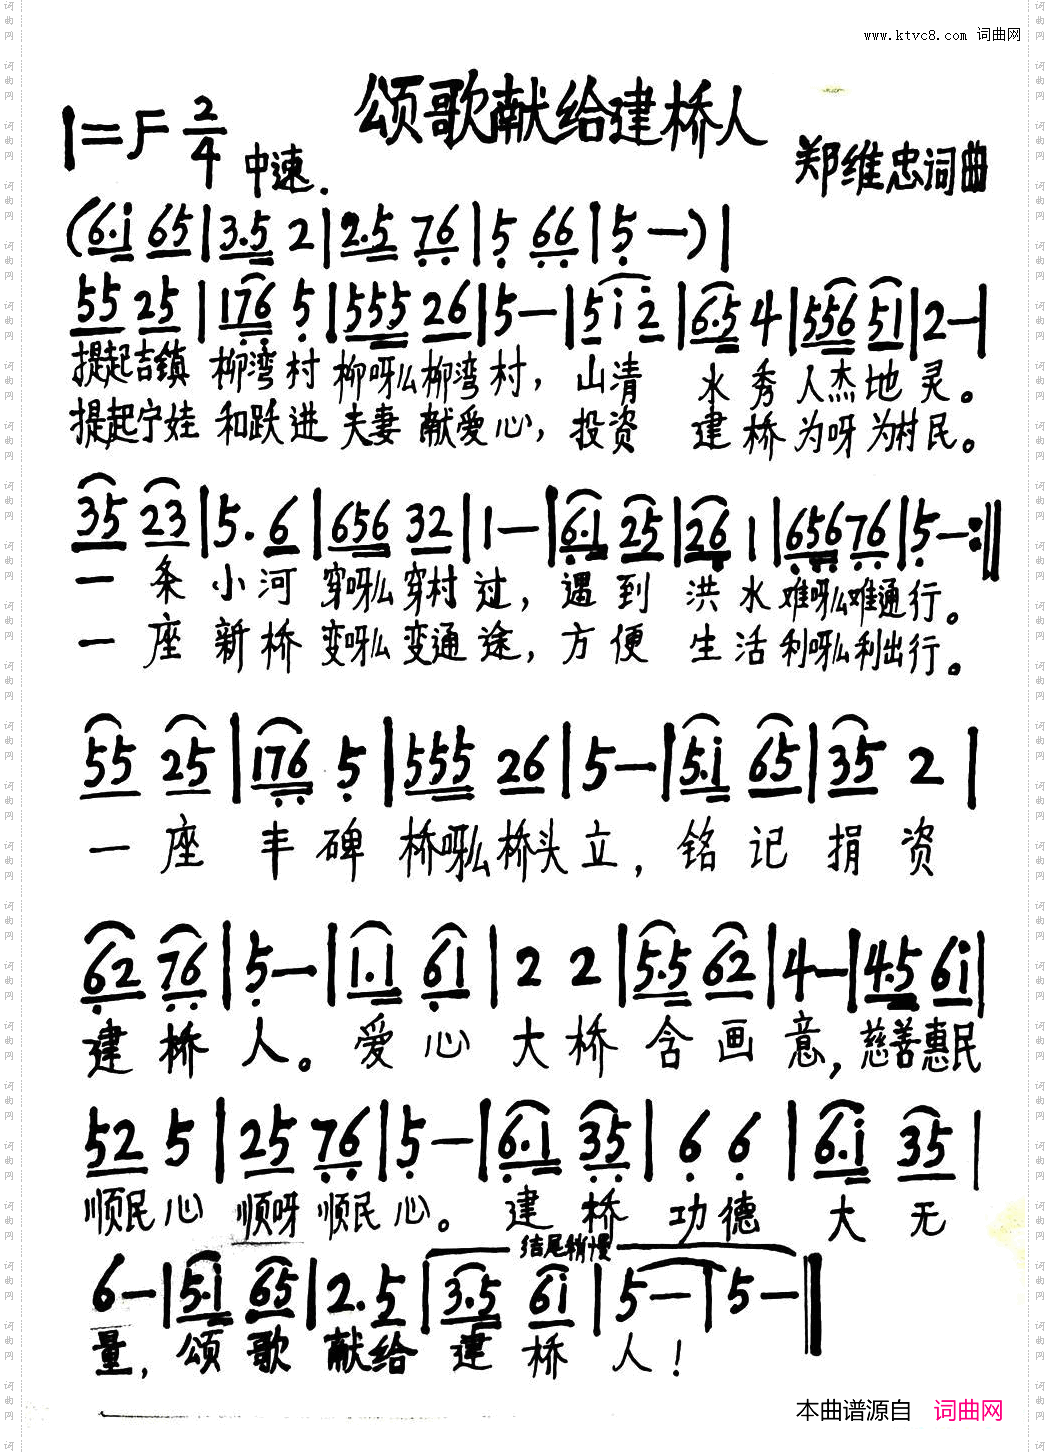 www.ktvc8.com 词曲网
颂歌献给建桥人
1=F 2/4 中速.
郑维忠词曲
(6·i 65|3·5 2|2·5 76|5 66|5 —)|
55 25|176 5|555 26|5 —|5 i 2|6·5 4|556 51|2 —|
提起吉鎮 柳湾村 柳呀么柳湾村, 山清 水秀人杰地灵。
提起宁娃 和跃进 夫妻献爱心, 投资 建桥为呀为村民。
35 23|5. 6|656 32|1 —|6·1 25|26 1|656 76|5 —:‖
一条小河 穿呀么穿村过, 遇到 洪水难呀么难通行。
一座新桥 变呀么变通途, 方便 生活利呀么利出行。
55 25|176 5|555 26|5 —|5·i 65|35 2|
一座丰碑 桥呀么桥头立, 铭记捐资
62 76|5 —|1·1 61|2 2|5·5 62|4 —|4·5 6i|
建桥人。爱心大桥含画意, 慈善惠民
52 5|25 76|5 —|6·1 35|6 6|6·i 35|
顺民心 顺呀顺民心。 建桥功德大无
结尾稍慢
6 —|5·i 65|2. 5|3·5 6i|5 —|5 —‖
量, 颂歌献给建桥人!
本曲谱源自 词曲网